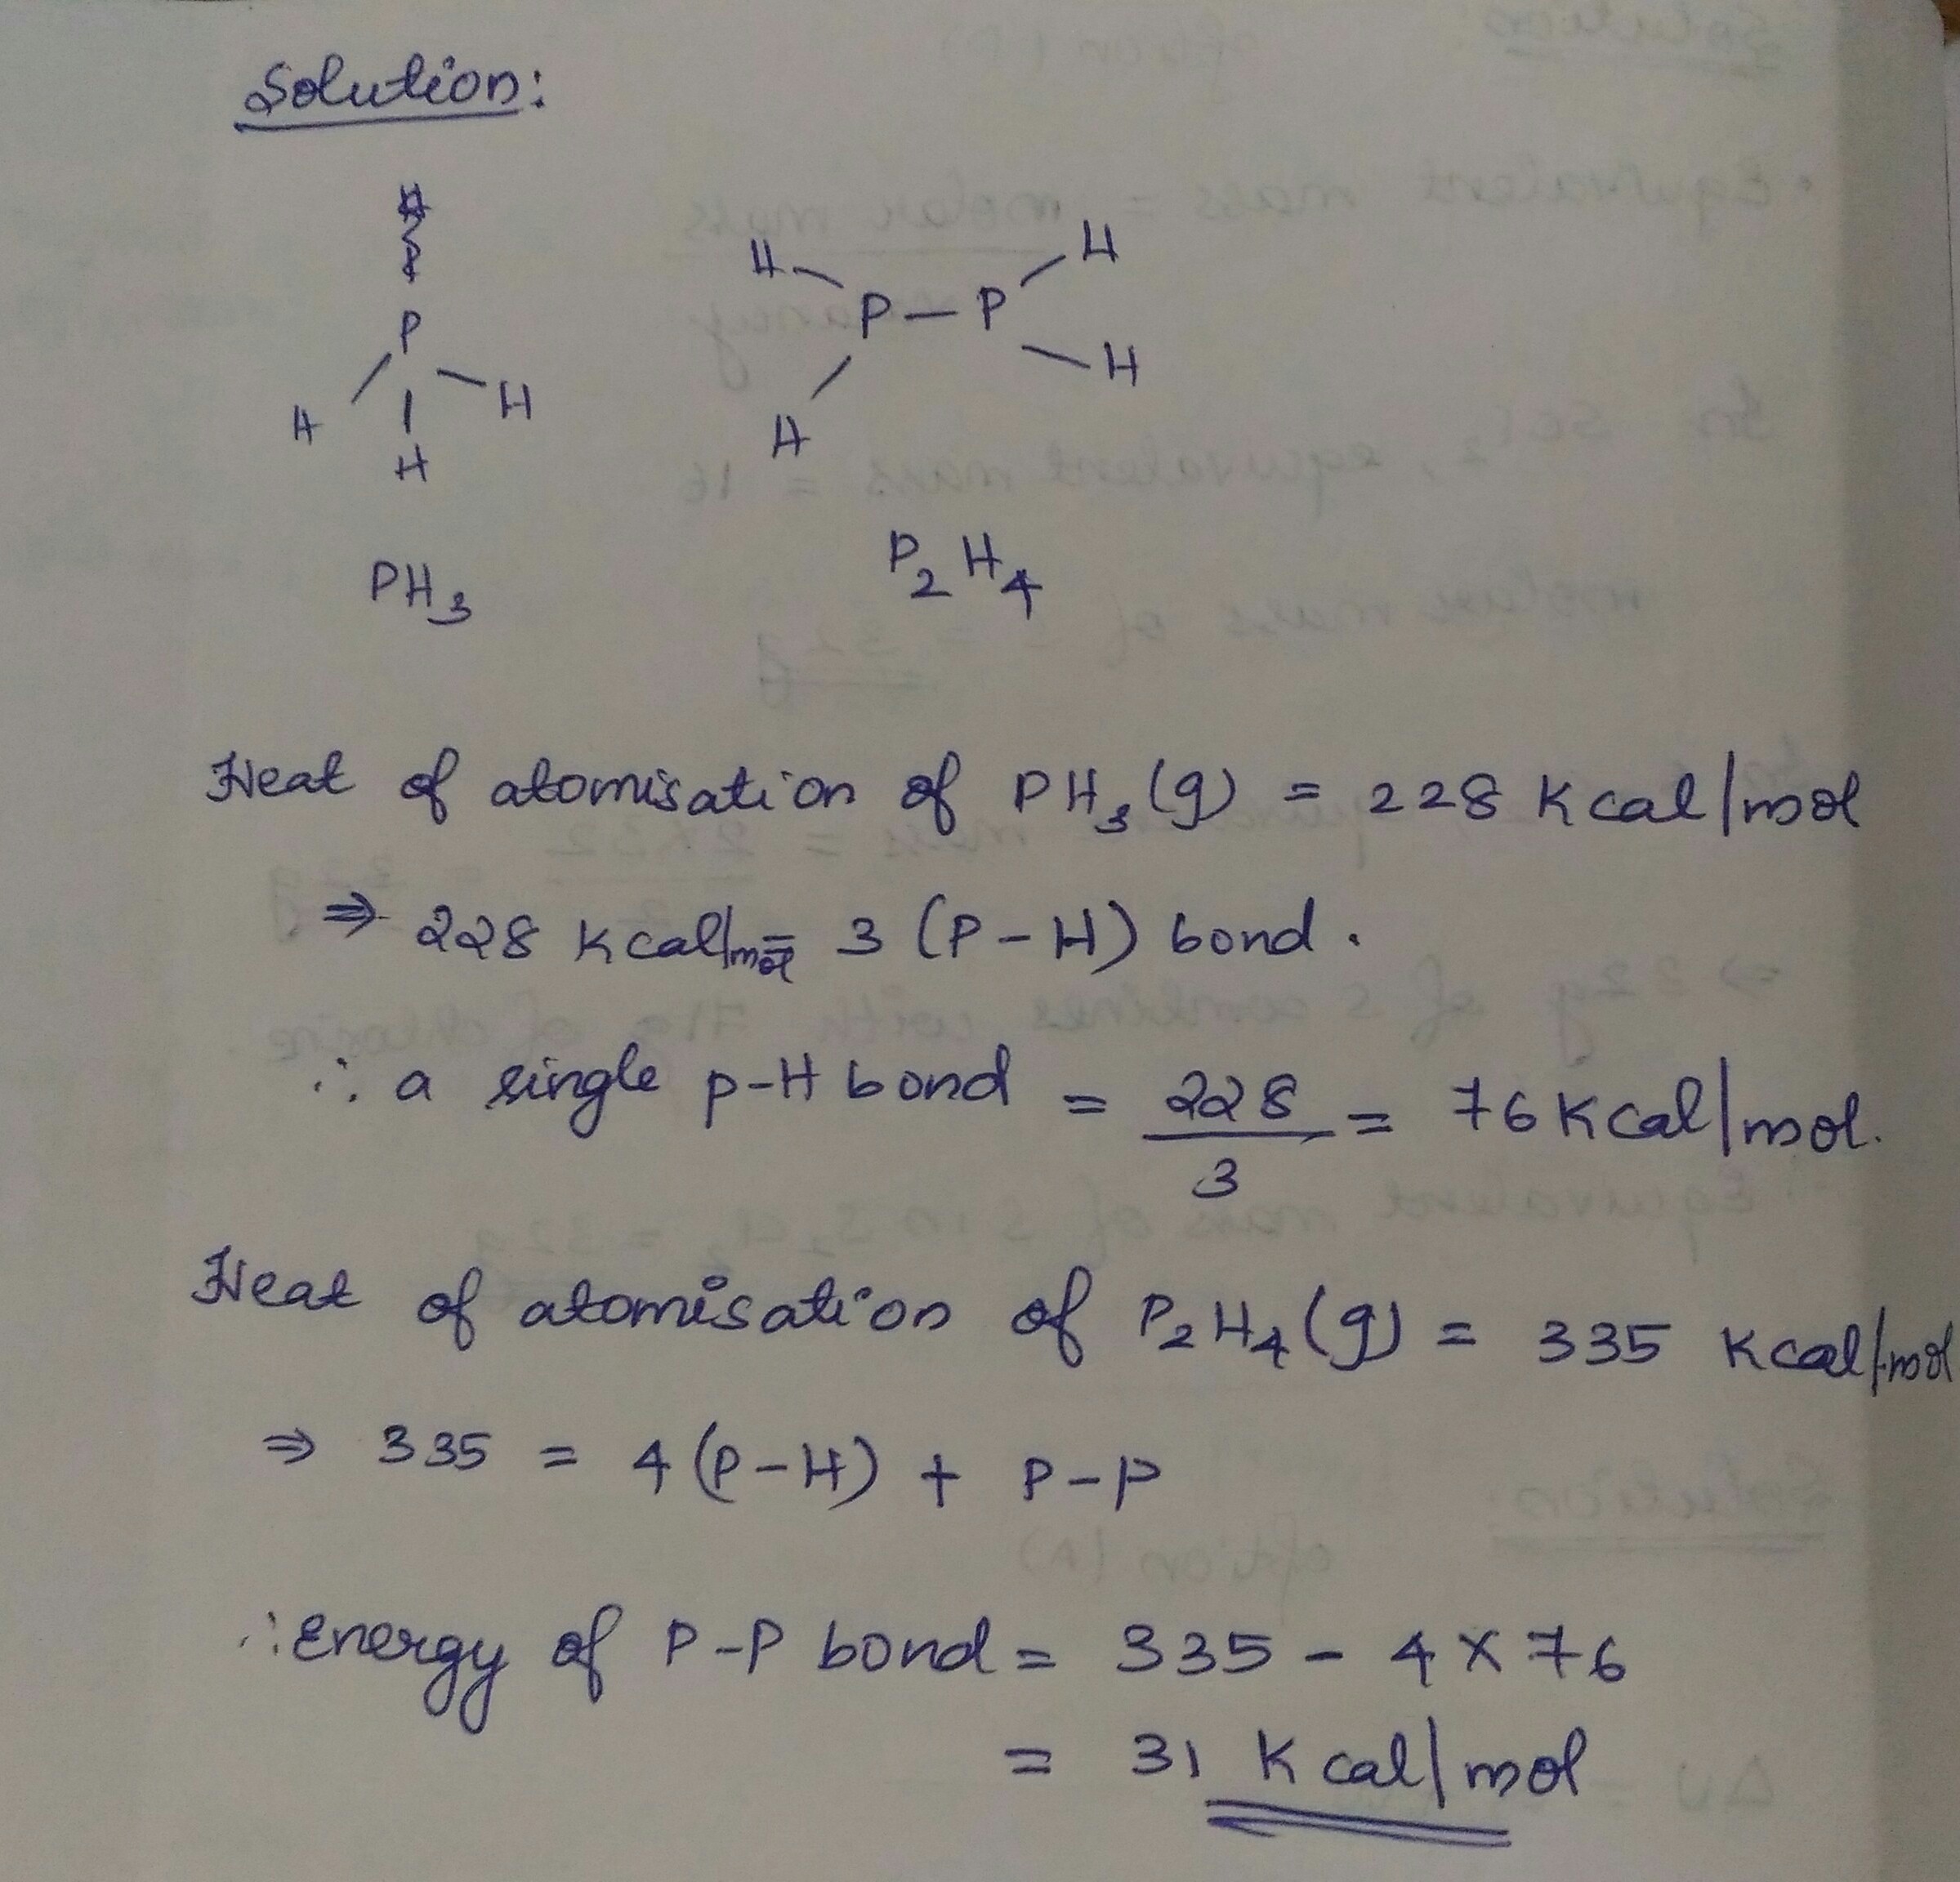 Solution:
P
H H
H
PH3
H H
P - P
H H
P2H4
Heat of atomisation of PH3(g) = 228 Kcal/mol
⇒ 228 Kcal/mol = 3 (P-H) bond.
∴ a single p-H bond = 228/3 = 76 Kcal/mol.
Heat of atomisation of P2H4(g) = 335 Kcal/mol
⇒ 335 = 4 (P-H) + P-P
∴ Energy of P-P bond = 335 - 4 × 76
= 31 Kcal/mol